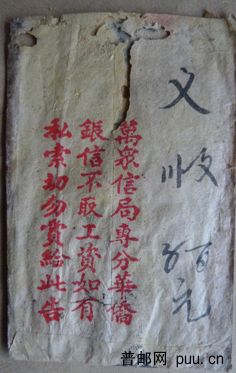 文收伍百元
萬泉信局專分華僑
銀信不取工資如有
私索切勿賞給此告
普邮网 puu.cn